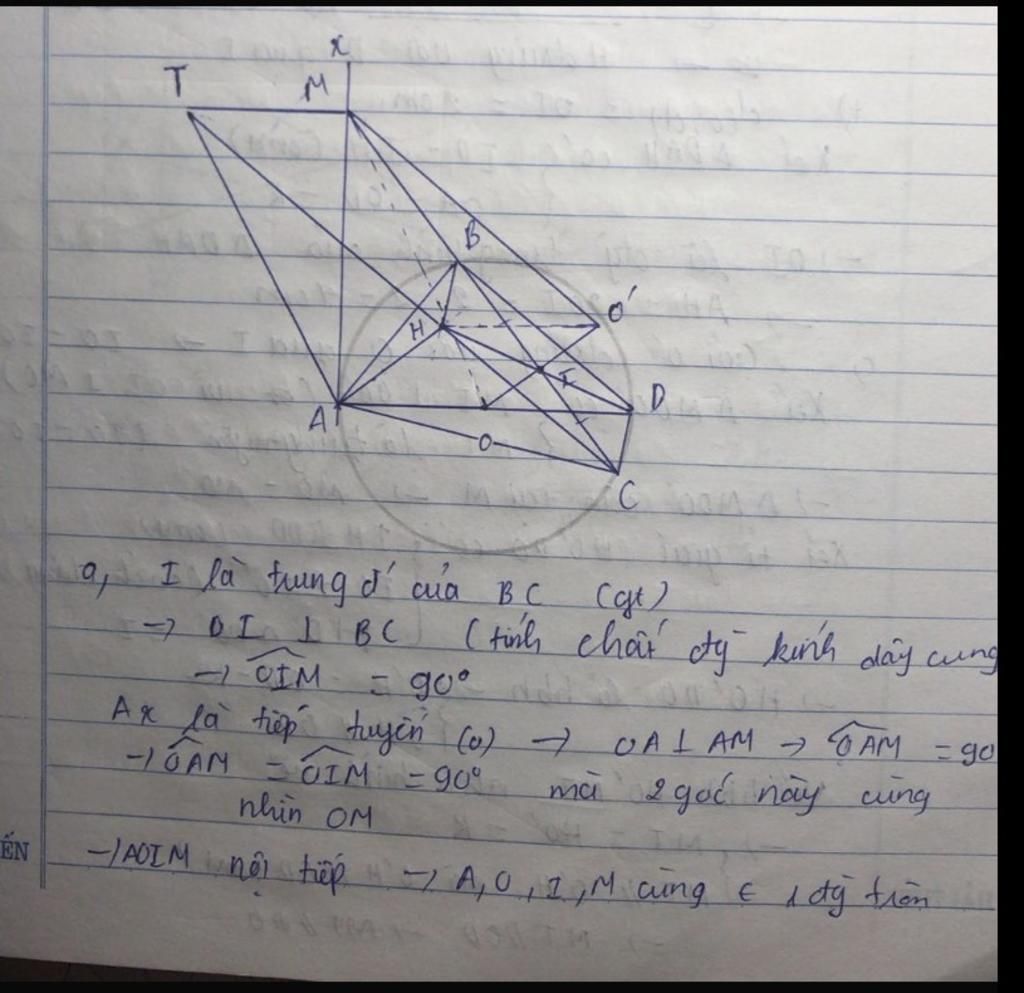 x
T M
B
H O'
I
A D
O
C
a, I là trung đ' của BC (gt)
→ OI ⊥ BC (tính chất đg kính dây cung
→ OIM = 90°
Ax là tiếp tuyến (O) → OA ⊥ AM → OAM = 90
→ OAM = OIM = 90° mà 2 góc này cùng
nhìn OM
ẾN
→ AOIM nội tiếp → A, O, I, M cùng ∈ 1 đg tròn